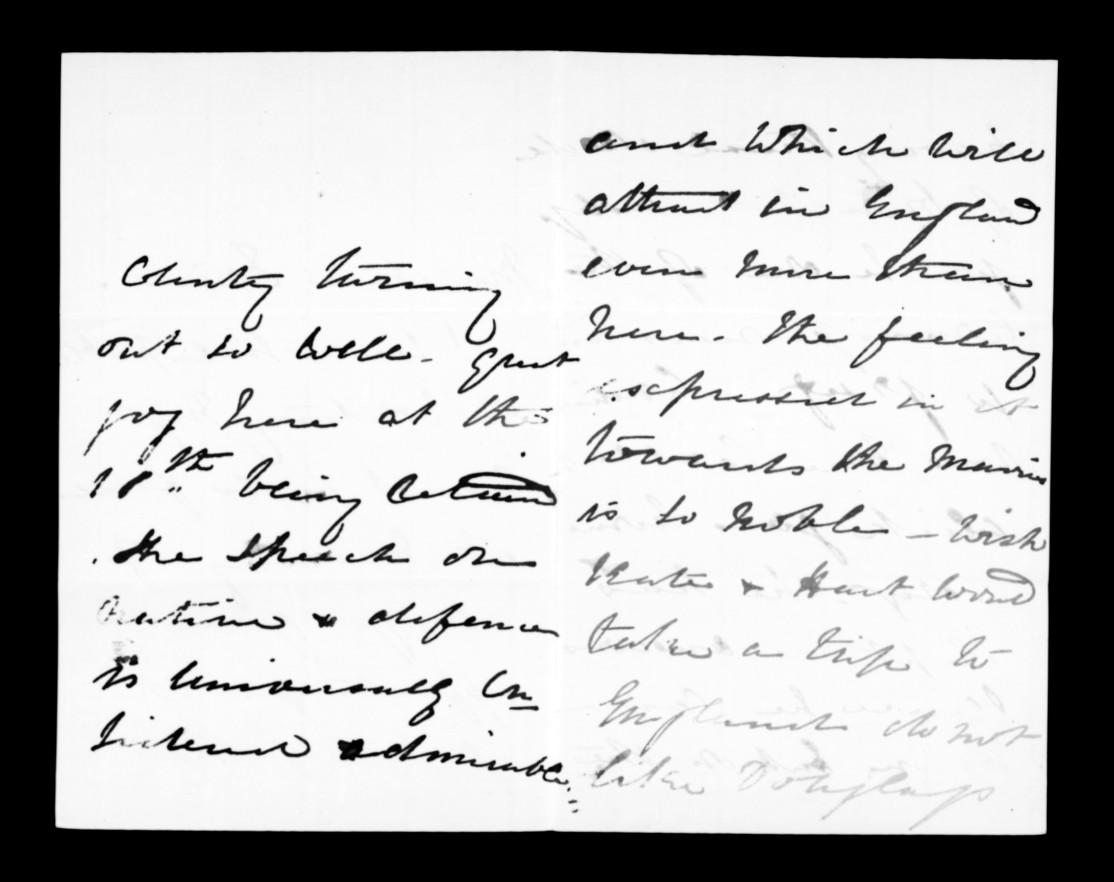 County turning
out so well. Great
joy here at the
18th being retained
. the speech on
native & defence
is universally con
sidered admirable.
and which will
attract in England
even more than
here. The feeling
expressed in it
towards the Maories
is so noble – wish
Kate & Hart would
take a trip to
England do not
like Douglass